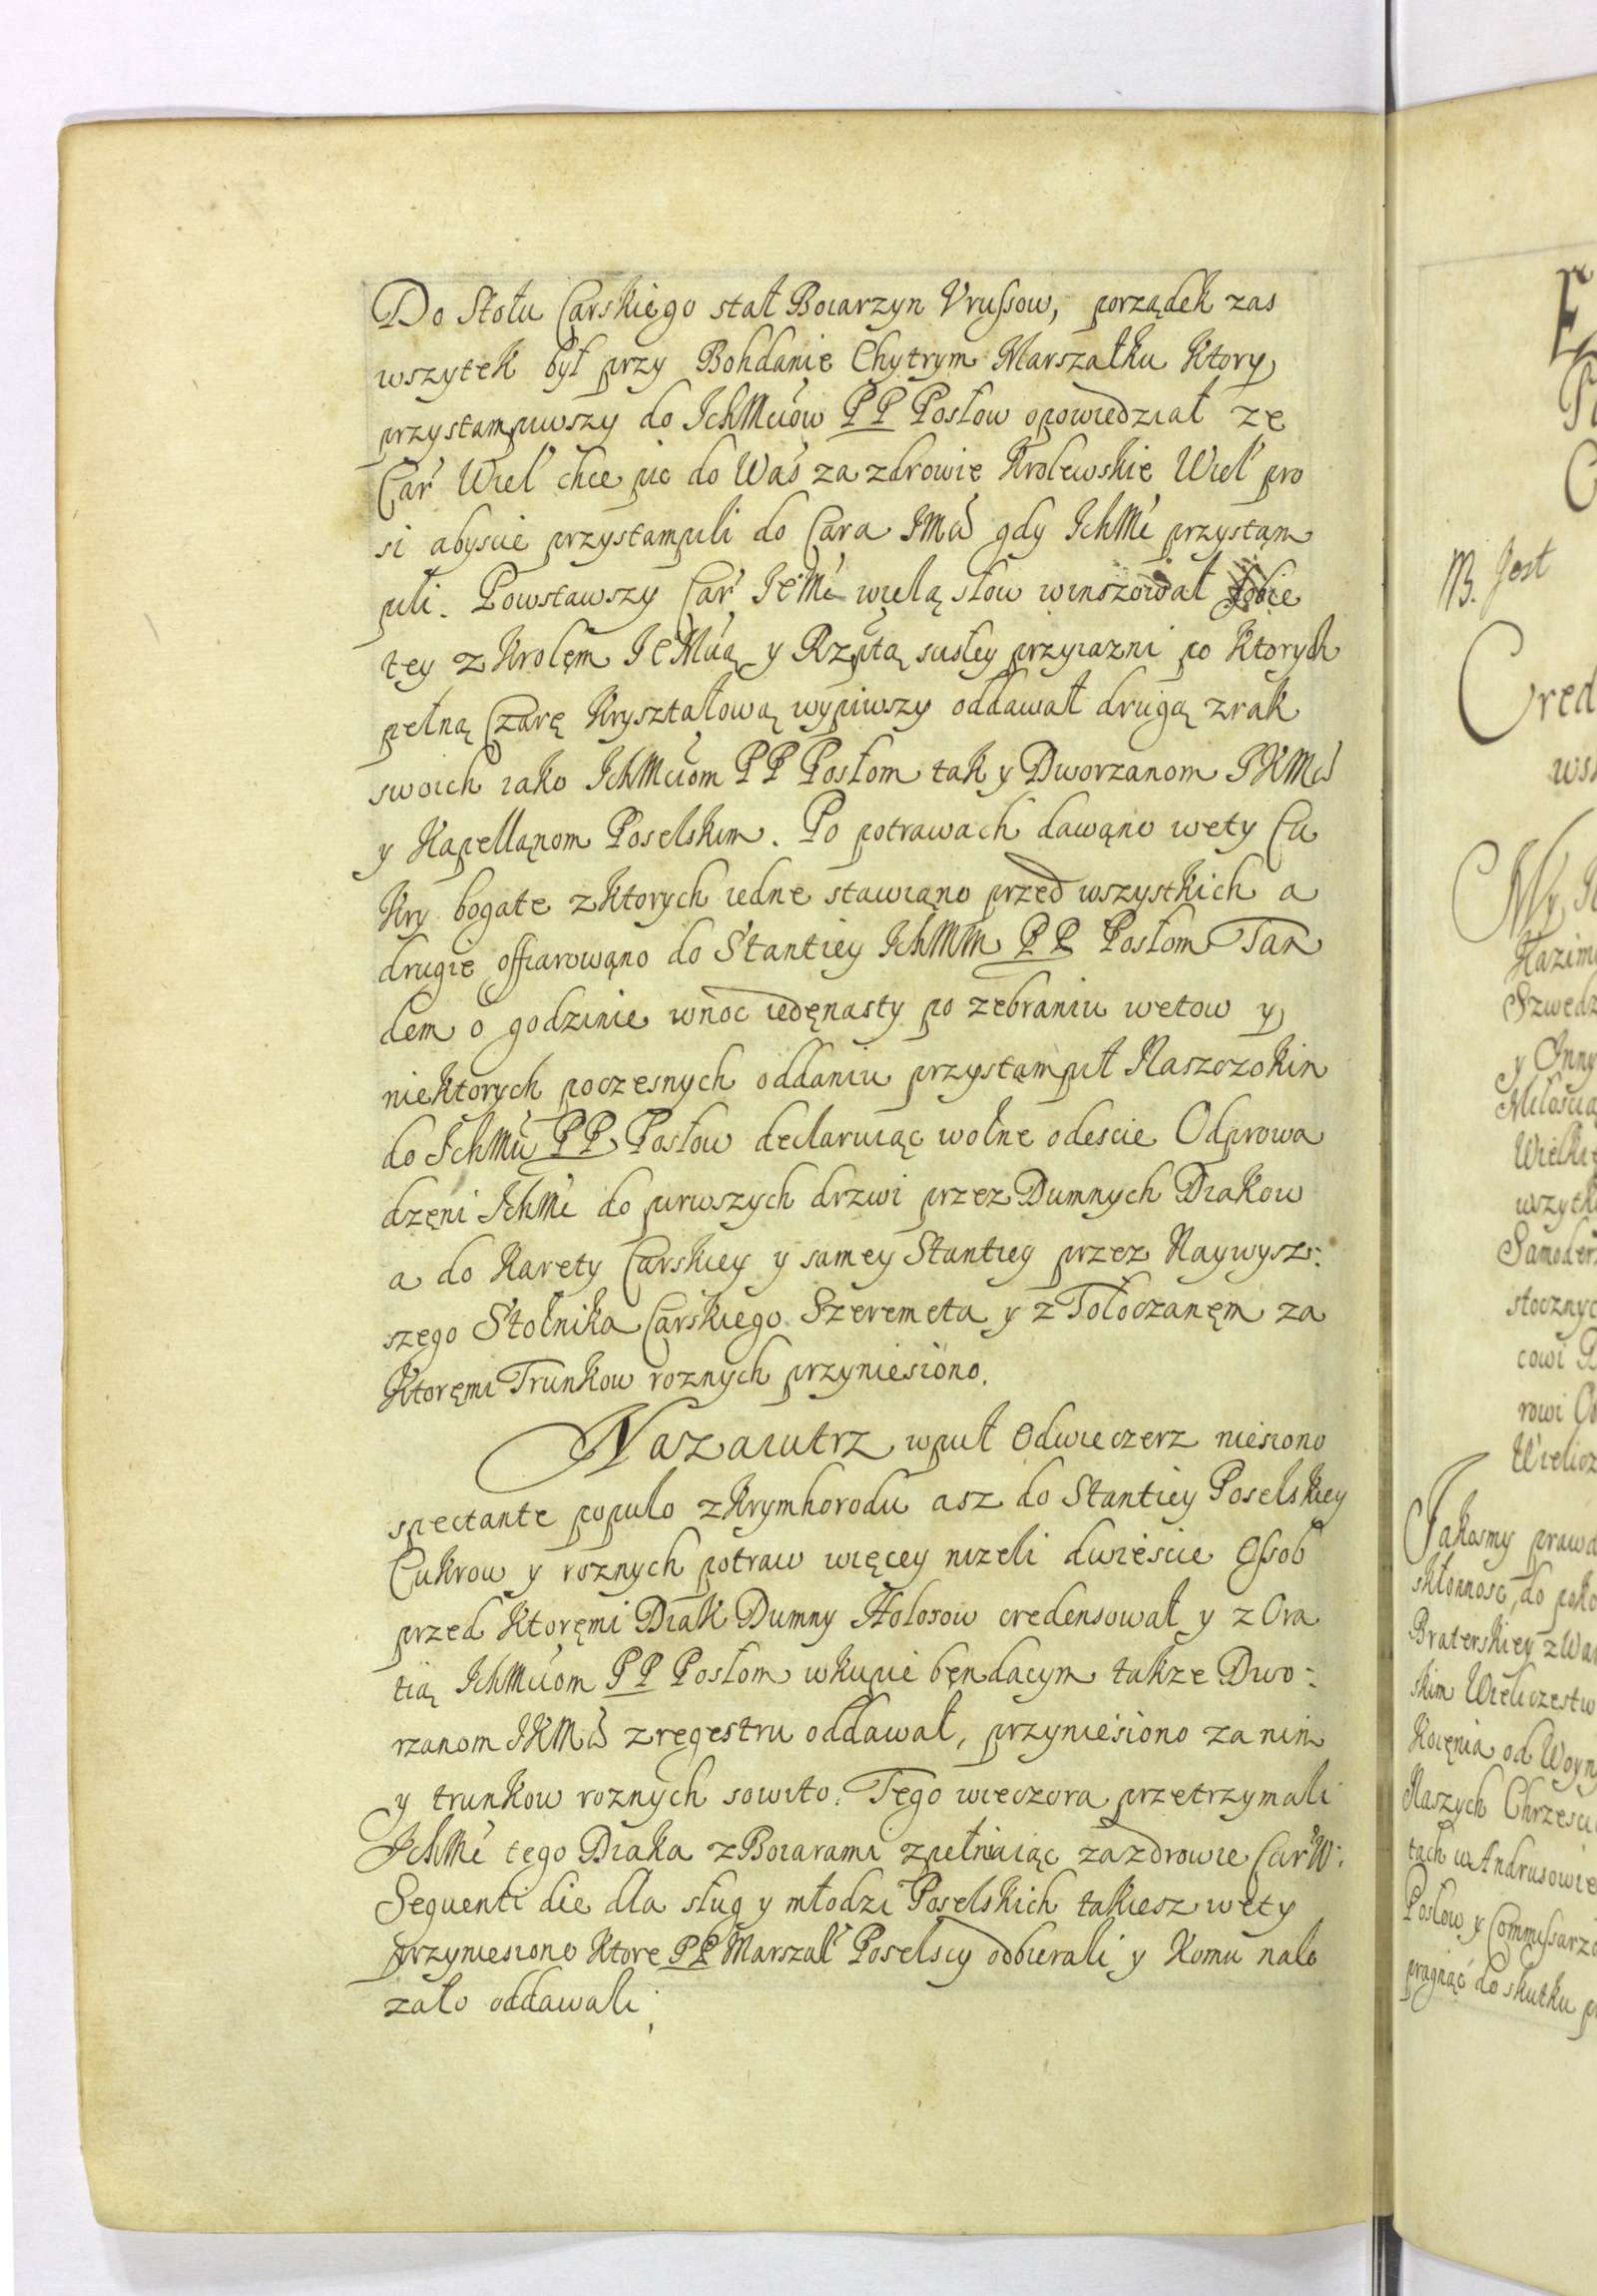 Do Stołu Carskiego stał Boiarzyn Vrussow, porządek zas
wszytek był przy Bohdanie Chytrym Marszałku Ktory
przystampiwszy do IchMciow PP Posłow opowiedział ze
Car Wiel chce pic do Was za zdrowie Krolewskie Wiel pro
si abyscie przystampili do Cara IMci gdy IchMc przystąm
pili. Powstawszy Car IeMc wielą słow winszował sobie
tey z Krolęm IeMcią y Rzptą scisłey przyiazni po Ktorych
pełną Czarę Kryształową wypiwszy oddawał drugą z rak
swoich iako IchMciom PP Posłom tak y Dworzanom IKMci
y Kapelląnom Poselskim. Po potrawach dawąno wety Cu
Kry bogate z Ktorych iedne stawiąno przed wszystkich a
drugie offiarowąno do Stantiey IchMm PP Posłom Tan
dem o godzinie w noc iedęnasty po zebraniu wetow y
niektorych poczesnych oddaniu przystąmpił Naszczokin
do IchMci PP Posłow declaruiąc wolne odescie Odprowa
dzęni IchMc do pirwszych drzwi przez Dumnych Diakow
a do Karety Carskiey y samey Stantiey przez Naywysz:
szego Stolnika Carskiego Szeremeta y z Tołoczanęm za
Ktoręmi Trunkow roznych przyniesiono.
Nazaiutrz w puł Odwieczerz niesiono
spectante populo z Krymhorodu asz do Stantiey Poselskiey
Cukrow y roznych potraw więcey nizeli dwiescie Ossob
przed Ktoręmi Diak Dumny Hołosow credensował y z Ora
tią IchMciom PP Posłom w kupie będacym takze Dwo:
rzanom IKMci z regestru oddawał, przyniesiono za nim
y trunkow roznych sowito. Tego wieczora przetrzymali
IchMc tego Diaka z Boiarami spełniaiąc za zdrowie Car W:
Sequenti die dla sług y młodzi Poselskich takiesz wety
przyniesiono Ktore PP Marszałk Poselscy odbierali y Komu nale
zało oddawali;
NB. Jest
Cred
Kazim
Szwedz
y Inny
Miłoscią
Wielki
wszytk
Samoder
stocznyc
cowi
rowi
Wielicz
Jakosmy prawd
skłonnosc, do poko
Braterskiey z Wa
skim Wieliczestw
Koięnia od Woyn
Naszych Chrzesci
tach w Andrusowie
Posłow y Commissarzo
pragnąc do skutku p